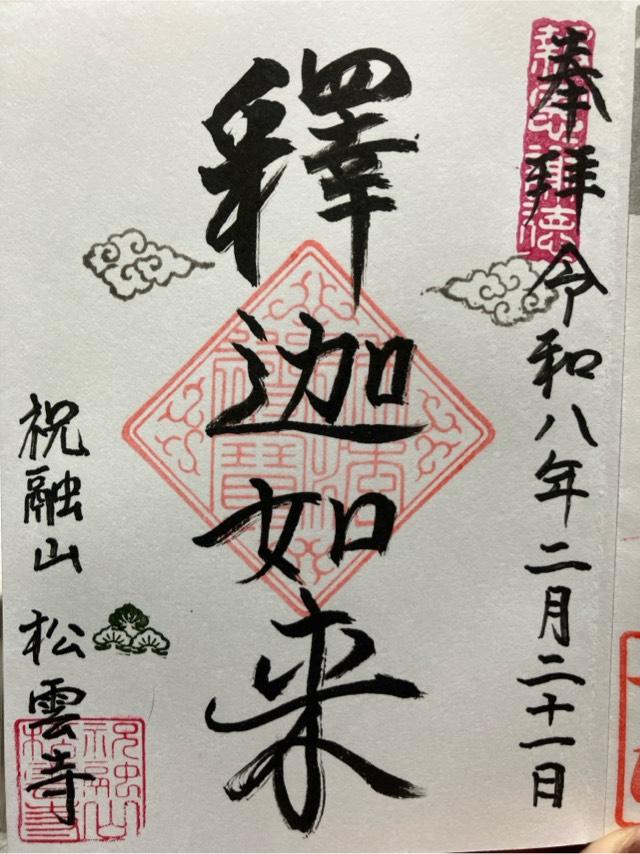 奉拝 令和八年二月二十一日
釋迦如来
祝融山 松雲寺